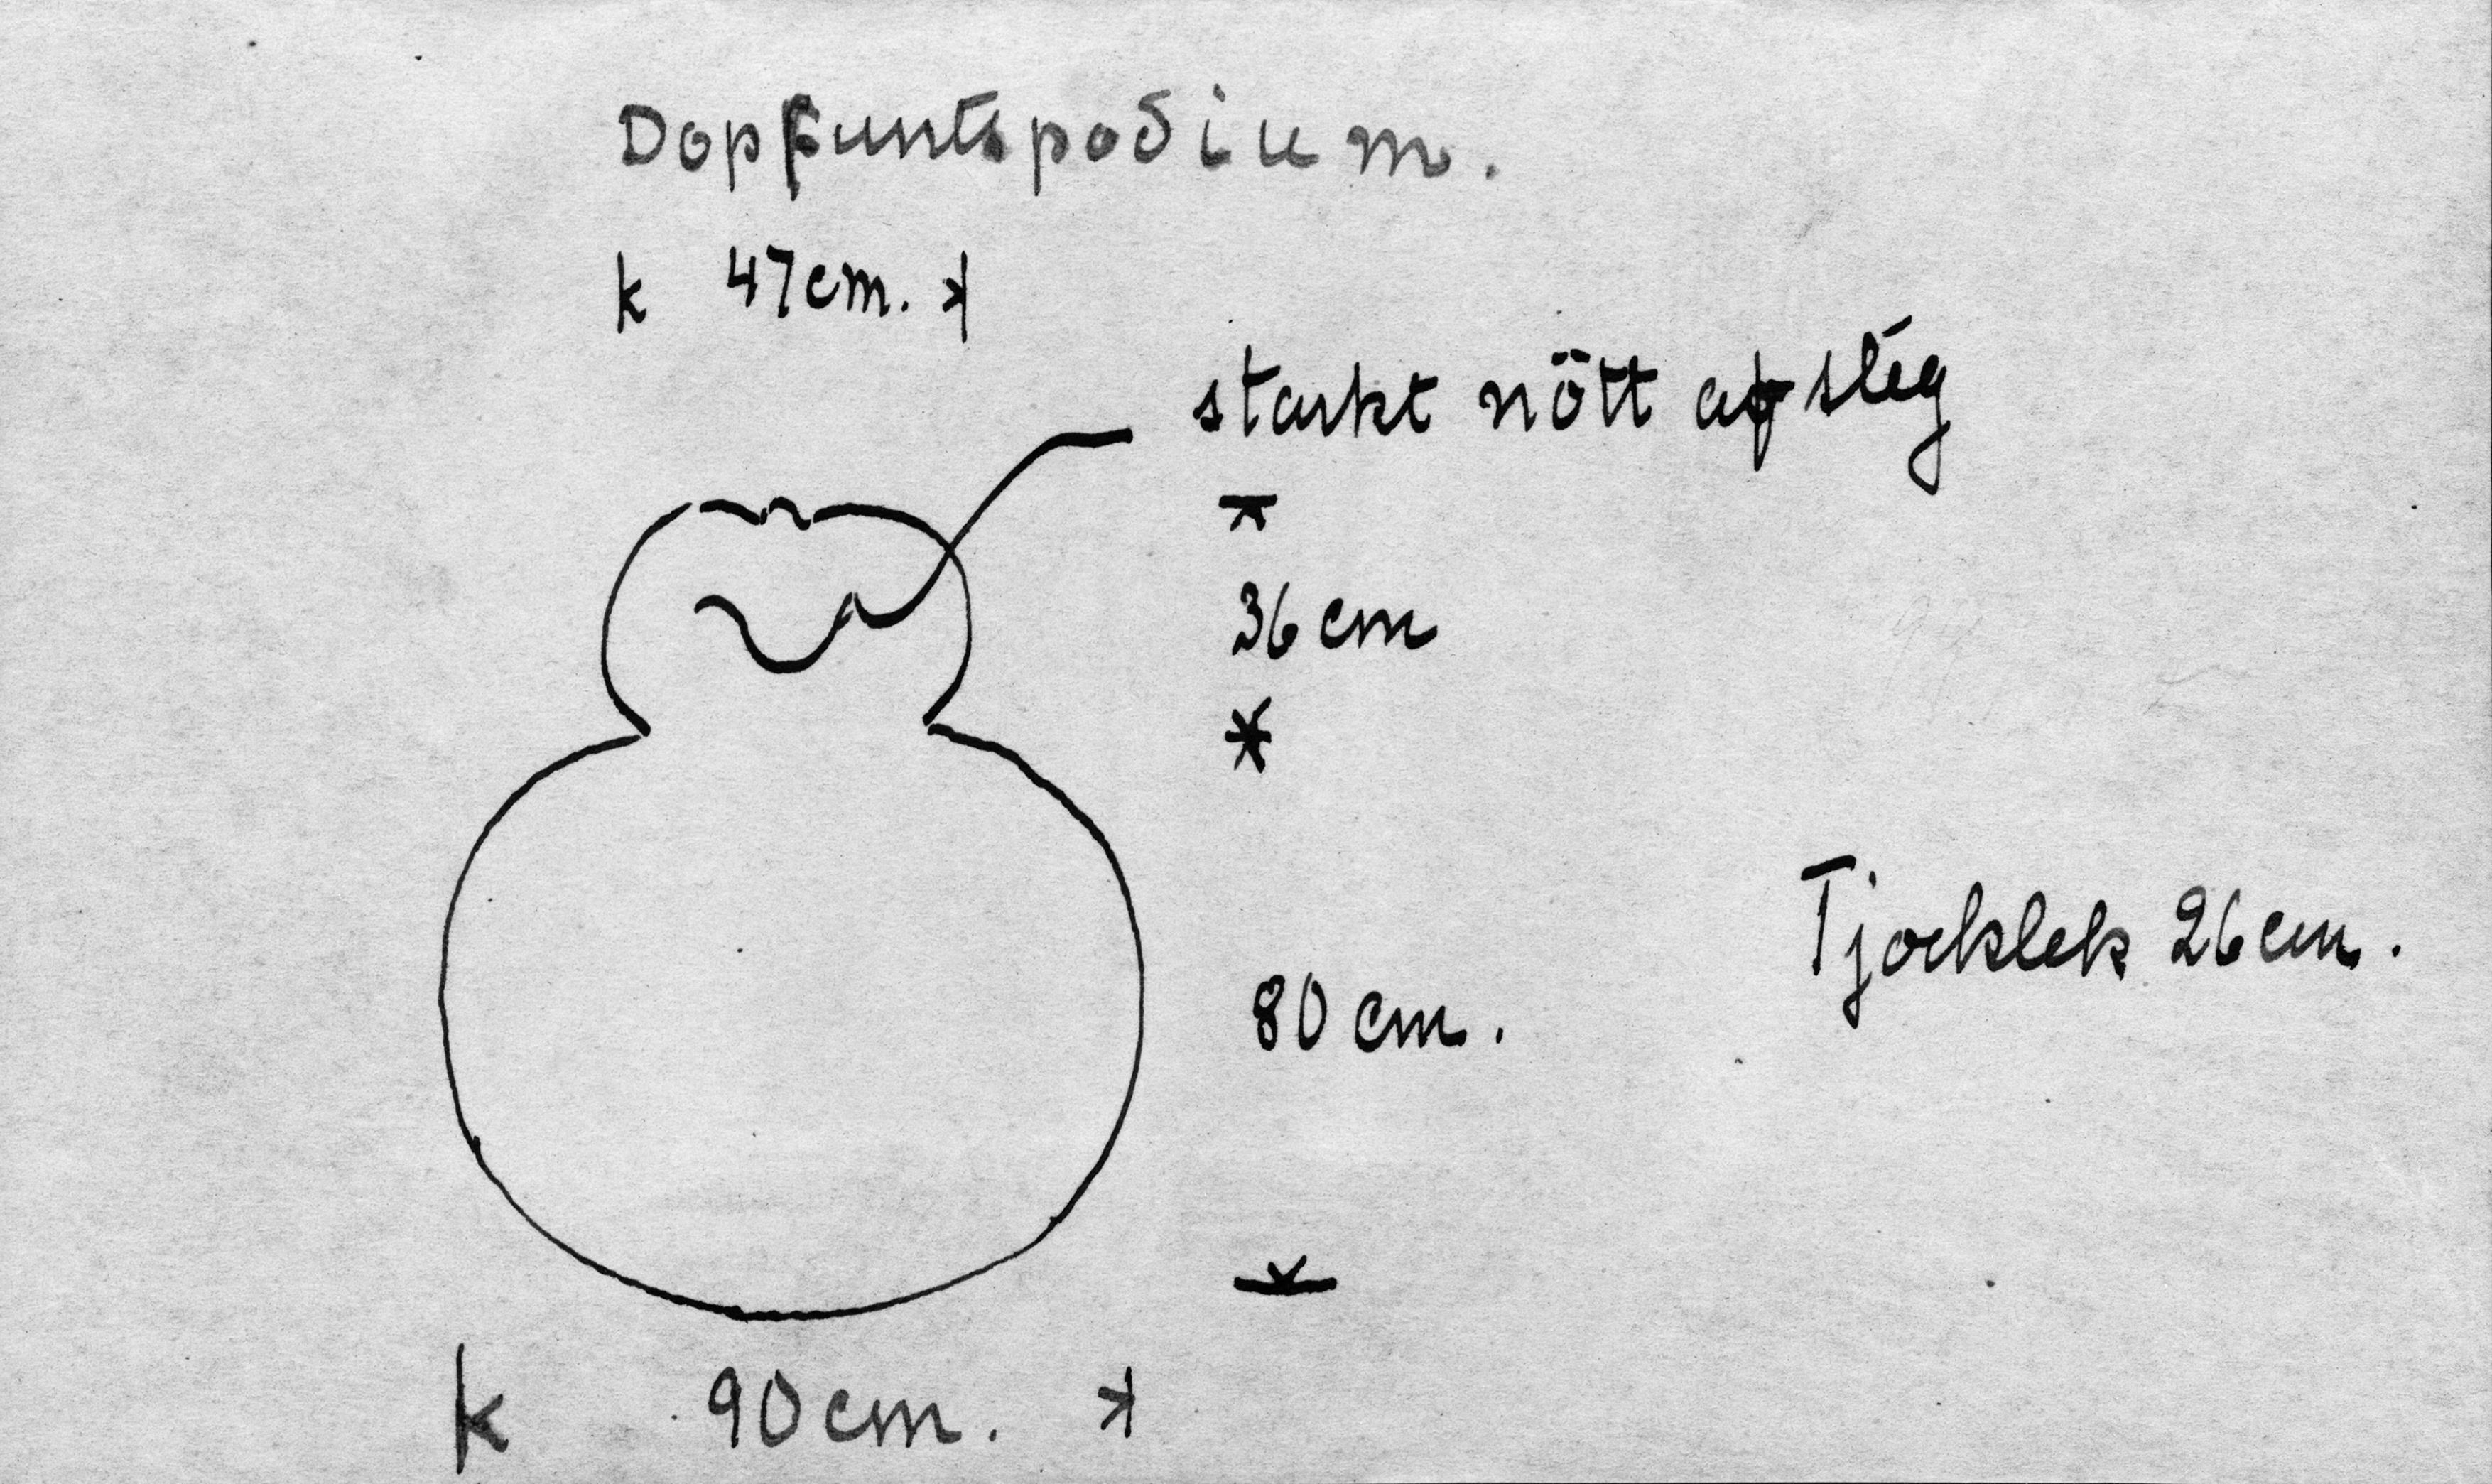 Dopfuntspodium.
47cm.
starkt nött af stég
36 cm
Tjocklek 26 cm.
80 cm.
90 cm.